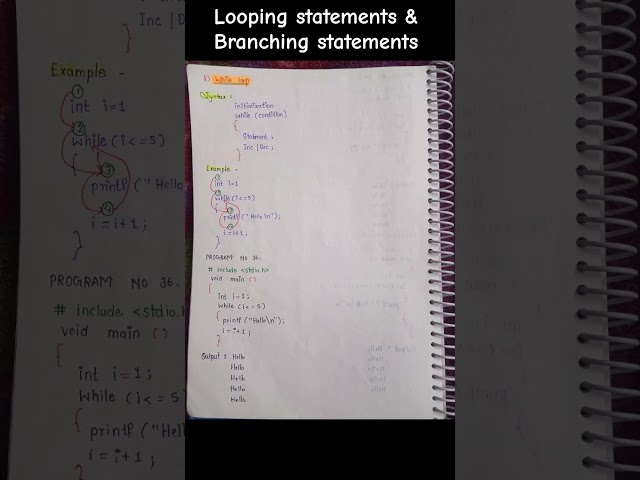 Looping statements &
Branching statements
1) While loop
Syntax :
initialization
while (condition)
{
Statment ;
Inc | Dec ;
}
Example -
①
int i=1
②
while(i<=5)
{ ③
printf("Hello\n");
④
i=i+1;
}
PROGRAM NO 36.
# include <stdio.h>
void main ()
{
int i=1;
while (i<=5)
{ printf("Hello\n");
i=i+1;
}
Output : Hello
Hello
Hello
Hello
Hello
Inc | D
}
Example -
①
int i=1
②
while(i<=5)
{ ③
printf("Hello
④
i=i+1;
}
PROGRAM NO 36
# include <stdio.h
void main ()
{
int i=1;
while (i<=5
{ printf("Hell
i=i+1;